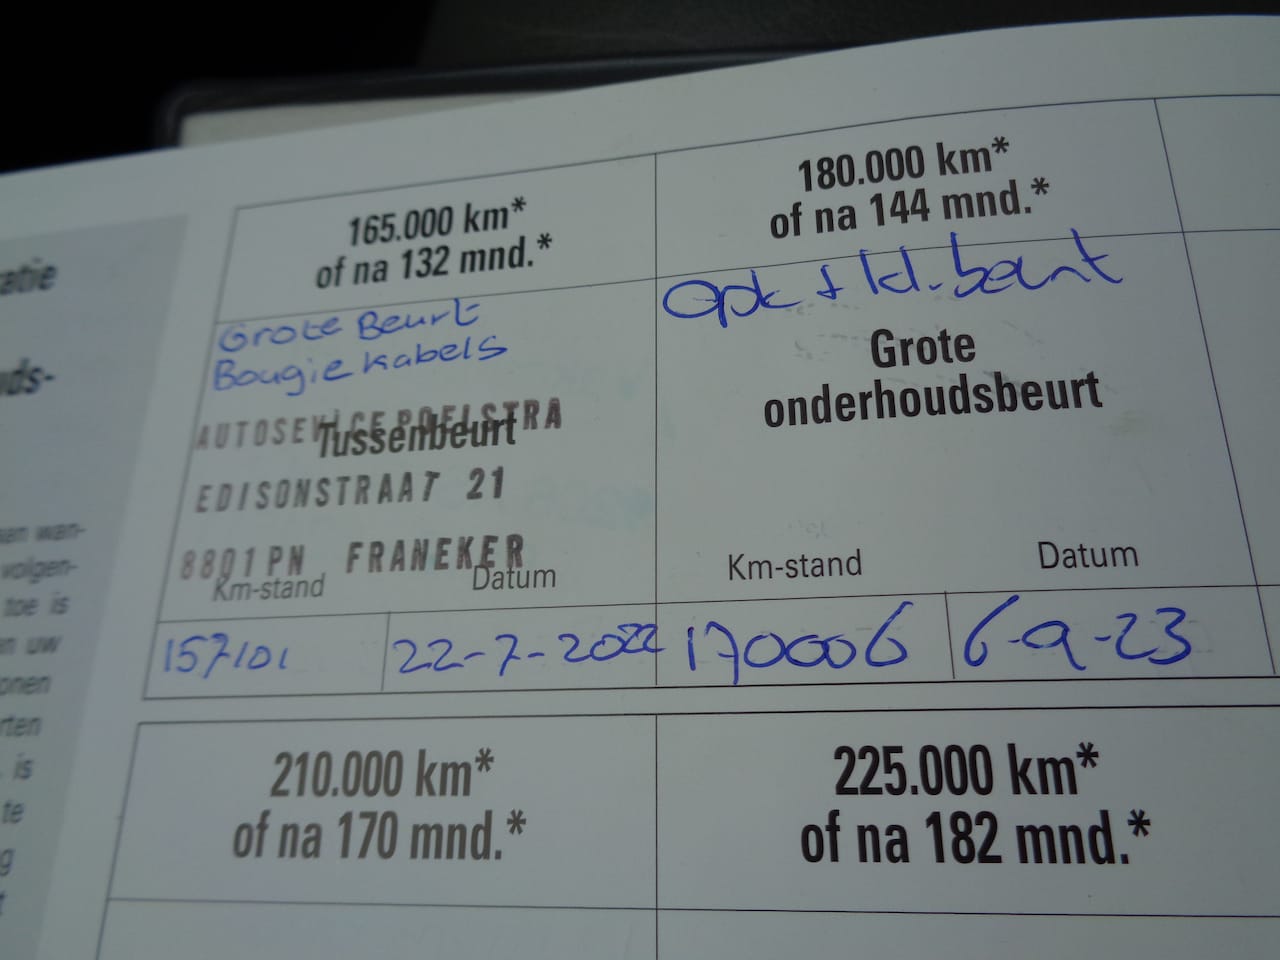 atie
ds-
an wan-
volgen-
toe is
n uw
onen
rten
is
te
g
t
165.000 km*
of na 132 mnd.*
Grote Beurt
Bougie kabels
AUTOSEVICE POELSTRA
Tussenbeurt
EDISONSTRAAT 21
8801 PN FRANEKER
Km-stand Datum
157101 22-7-2022
180.000 km*
of na 144 mnd.*
apk + kl. beurt
Grote
onderhoudsbeurt
Km-stand Datum
170006 6-9-23
210.000 km*
of na 170 mnd.*
225.000 km*
of na 182 mnd.*